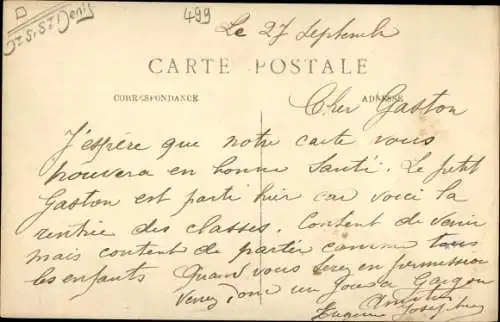 D
St Denis
499
Le 27 Septembre
CARTE POSTALE
CORRESPONDANCE
ADRESSE
Cher Gaston
J'espère que notre carte vous
trouvera en bonne Santé. Le petit
Gaston est parti hier car voici la
rentrée des classes. Content de venir
mais content de partir comme tous
les enfants Quand vous serez en permission
Venez donc un jour a
Amitiés
Eugène Joséphine